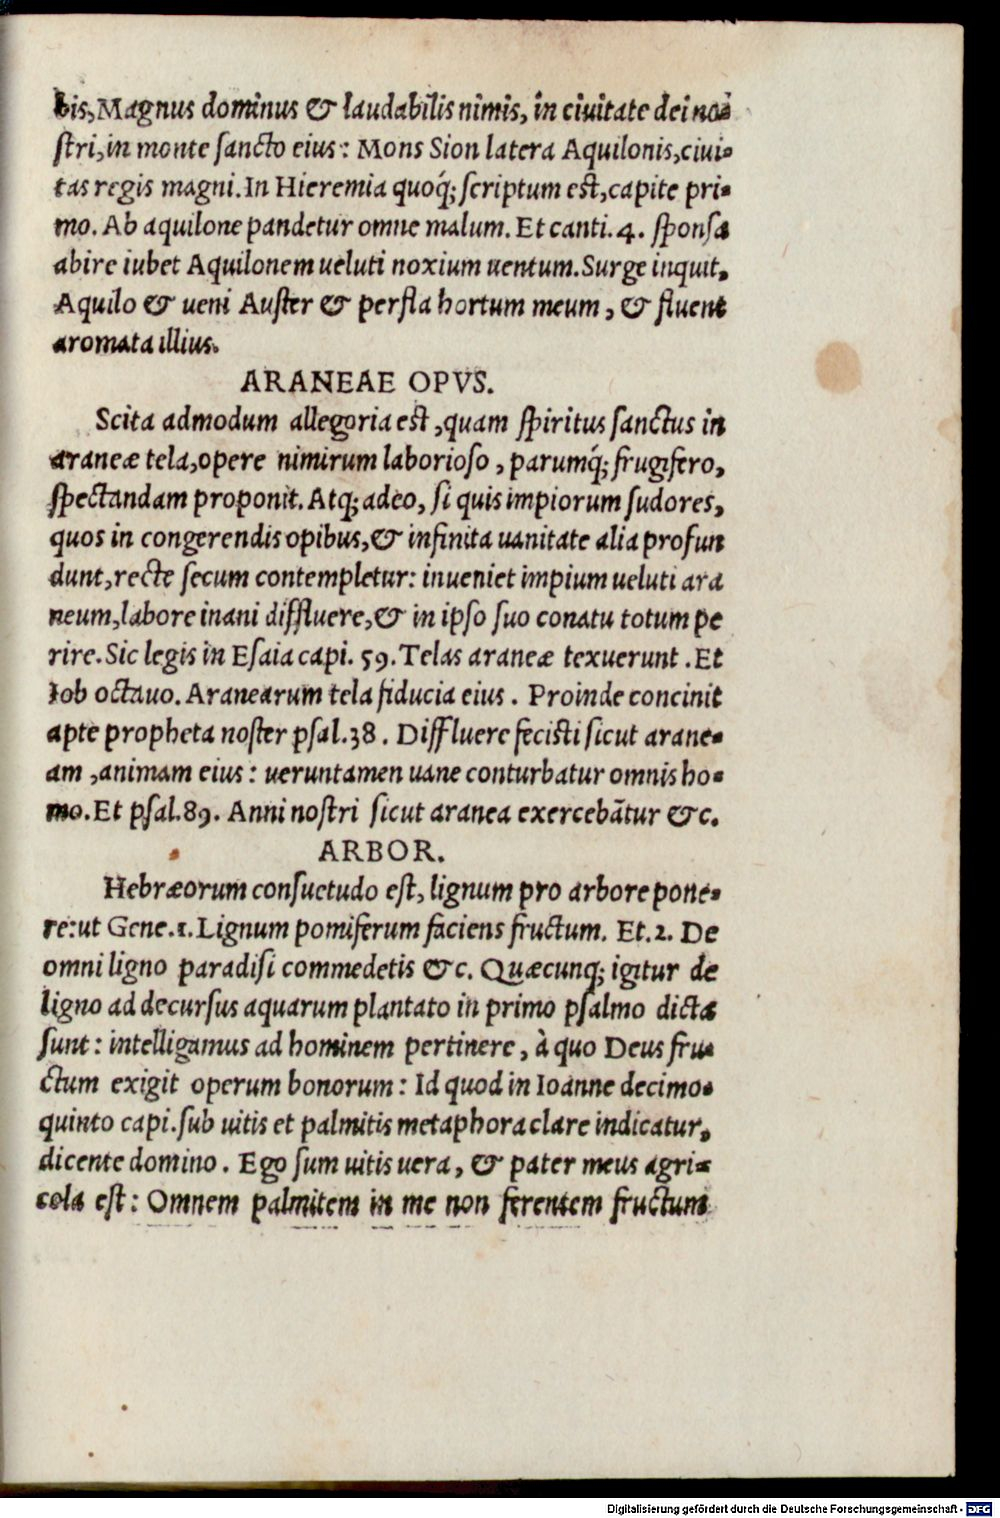 bis, Magnus dominus & laudabilis nimis, in ciuitate dei no⸗
ſtri, in monte ſancto eius: Mons Sion latera Aquilonis, ciui⸗
tas regis magni. In Hieremia quoq́; ſcriptum eſt, capite pri⸗
mo. Ab aquilone pandetur omne malum. Et canti. 4. ſponſa
abire iubet Aquilonem ueluti noxium uentum. Surge inquit,
Aquilo & ueni Auſter & perfla hortum meum, & fluent
aromata illius.
ARANEAE OPVS.
Scita admodum allegoria eſt, quam ſpiritus ſanctus in
araneæ tela, opere nimirum laborioſo, parumq́; frugifero,
ſpectandam proponit. Atq; adeo, ſi quis impiorum ſudores,
quos in congerendis opibus, & infinita uanitate alia profun
dunt, recte ſecum contempletur: inueniet impium ueluti ara
neum, labore inani diffluere, & in ipſo ſuo conatu totum pe
rire. Sic legis in Eſaia capi. 59. Telas araneæ texuerunt. Et
Iob octauo. Aranearum tela fiducia eius. Proinde concinit
apte propheta noſter pſal. 38. Diffluere feciſti ſicut arane⸗
am, animam eius: ueruntamen uane conturbatur omnis ho⸗
mo. Et pſal. 89. Anni noſtri ſicut aranea exercebãtur &c.
ARBOR.
Hebræorum conſuetudo eſt, lignum pro arbore pone⸗
re: ut Gene. 1. Lignum pomiferum faciens fructum. Et. 2. De
omni ligno paradiſi commedetis &c. Quæcunq; igitur de
ligno ad decurſus aquarum plantato in primo pſalmo dicta
ſunt: intelligamus ad hominem pertinere, à quo Deus fru⸗
ctum exigit operum bonorum: Id quod in Ioanne decimo⸗
quinto capi. ſub uitis et palmitis metaphora clare indicatur,
dicente domino. Ego ſum uitis uera, & pater meus agri⸗
cola eſt: Omnem palmitem in me non ferentem fructum
Digitalisierung gefördert durch die Deutsche Forschungsgemeinschaft - DFG